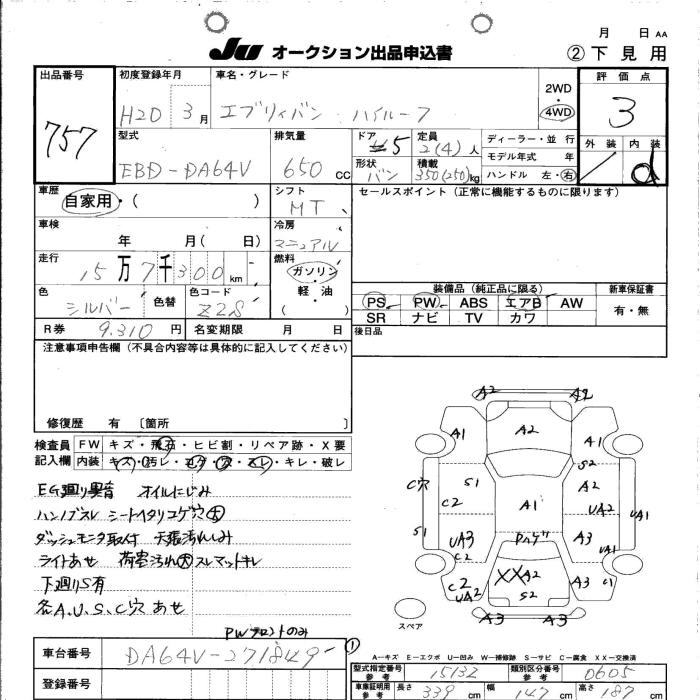 月 日 AA
JU オークション出品申込書 ② 下見用
出品番号 757
初度登録年月 H20 3月
車名・グレード エブリィバン ハイルーフ
2WD・4WD
評価点 3
外装 内装 d
型式 EBD-DA64V
排気量 650 CC
ドア 5
定員 2(4)人
形状 バン
積載 350(250)kg
ディーラー・並行
モデル年式 年
ハンドル 左・右
車歴 自家用・( )
シフト MT
セールスポイント(正常に機能するものに限ります)
車検 年 月( 日)
冷房 マニュアル
走行 15万7千300km
燃料 ガソリン・軽油 ( )
色 シルバー 色替
色コード Z2S
装備品(純正品に限る) 新車保証書
PS PW ABS エアB AW 有・無
SR ナビ TV カワ
R券 9,310円 名変期限 月 日
後日品
注意事項申告欄(不具合内容等は具体的に記入してください)
修復歴 有 〔箇所 〕
検査員記入欄
FW キズ・飛石・ヒビ割・リペア跡・X要
内装 キズ・汚レ・コゲ・穴・スレ・キレ・破レ
EG廻り異音 オイルにじみ
ハンドルスレ シートヘタリコゲ穴大
ダッシュモニタ取付 天張汚れしみ
ライトあせ 荷室汚れ大スレマットキレ
下廻りS有
各A.U.S.C穴 あせ
PWフロントのみ
A2 A2
A1 A2 A1
S2
C穴 S1 A2
C2 A1 UA2 UA1
S1 UA3 A3
C2
C2 XXA2 A3 C1
UA2 S2
A3 A3
スペア
A-キズ E-エクボ U-凹み W-補修跡 S-サビ C-腐食 XX-交換済
車台番号 DA64V-271849 ①
登録番号
型式指定番号 参考 15132
類別区分番号 参考 0605
車庫証明用 参考 長さ 339cm 幅 147cm 高さ 187cm